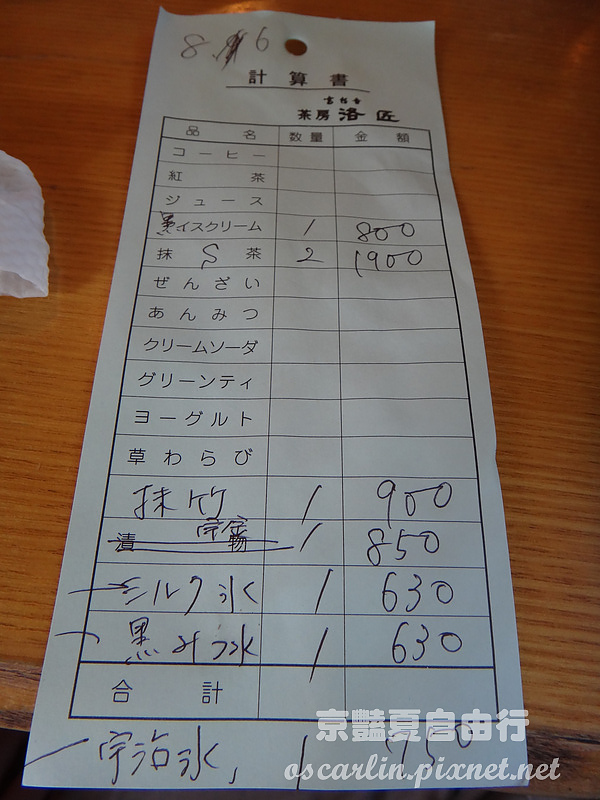 8 6
計算書
茶房 洛匠
品名 数量 金額
コーヒー
紅茶
ジュース
黒イスクリーム 1 800
抹 S 茶 2 1900
ぜんざい
あんみつ
クリームソーダ
グリーンティ
ヨーグルト
草わらび
抹竹 1 900
漬物 宇金 1 850
シルク氷 1 630
黒みつ氷 1 630
合計
宇治氷, 1 750
京豔夏自由行
oscarlin.pixnet.net